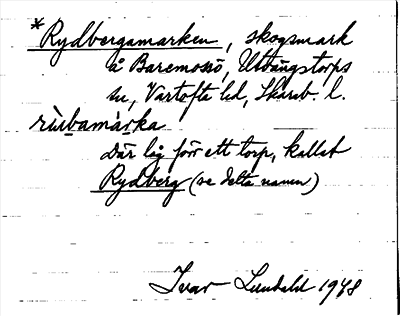 *Rydbergamarken, skogsmark
å Baremosső, Utvängstorps
sn, Vartofta hd, Skarab. l.
rùbamàrka
Där låg förr ett torp, kallat
Rydberg (se detta namn)
Ivar Lundahl 1948